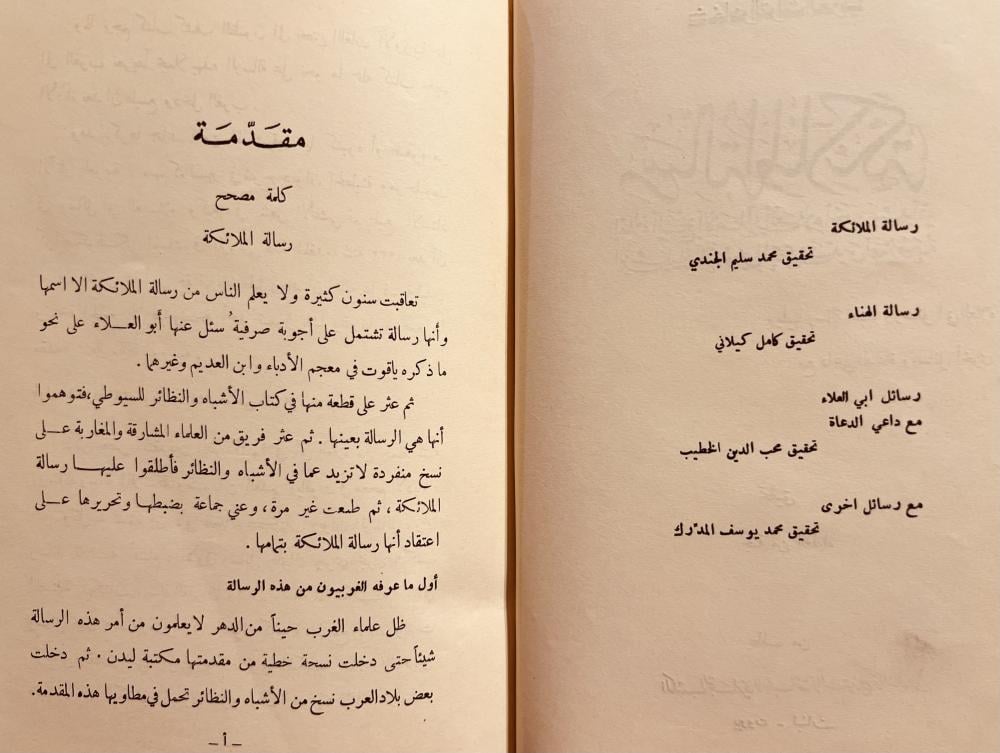 رسالة الملائكة
تحقيق محمد سليم الجندي
رسالة الهناء
تحقيق كامل كيلاني
رسائل ابي العلاء
مع داعي الدعاة
تحقيق محب الدين الخطيب
مع رسائل اخرى
تحقيق محمد يوسف المدرك
مقدّمة
كلمة مصحح
رسالة الملائكة
تعاقبت سنون كثيرة ولا يعلم الناس من رسالة الملائكة الا اسمها
وأنها رسالة تشتمل على أجوبة صرفية ُسئل عنها أبو العـلاء على نحو
ما ذكره ياقوت في معجم الأدباء وابن العديم وغيرهما .
ثم عثر على قطعة منها في كتاب الأشباه والنظائر للسيوطي، فتوهموا
أنها هي الرسالة بعينها . ثم عثر فريق من العلماء المشارقة والمغاربة عـلى
نسخ منفردة لاتزيد عما في الأشباه والنظائر فأطلقوا عليهـا رسالة
الملائكة ، ثم طبعت غير مرة ، وعني جماعة بضبطهـا وتحريرها عـلى
اعتقاد أنها رسالة الملائكة بتمامها .
أول ما عرفه الغربيون من هذه الرسالة
ظل علماء الغرب حيناً من الدهر لا يعلمون من أمر هذه الرسالة
شيئاً حتى دخلت نسخة خطية من مقدمتها مكتبة ليدن . ثم دخلت
بعض بلاد العرب نسخ من الأشباه والنظائر تحمل في مطاويها هذه المقدمة.
ـ أ ـ